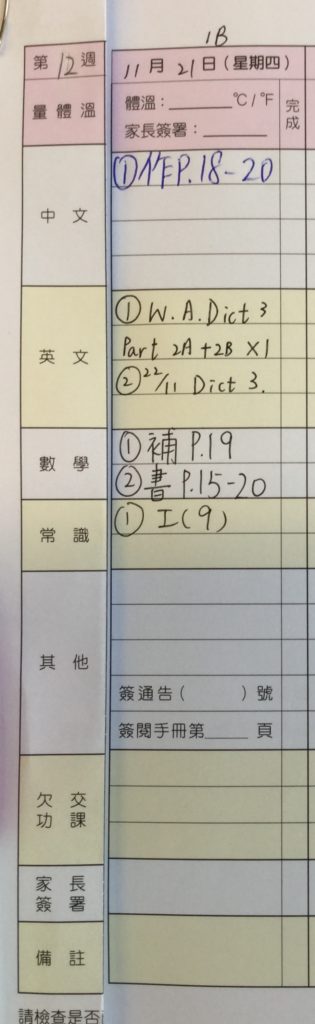 1B
第 12 週
11 月 21 日 (星期四)
量 體 溫
體溫：______ °C / °F
家長簽署：______
完成
中 文
① 作 P.18-20
英 文
① W.A. Dict 3
Part 2A + 2B X1
② 22/11 Dict 3.
數 學
① 補 P.19
② 書 P.15-20
常 識
① 工(9)
其 他
簽通告 ( ) 號
簽閱手冊第____ 頁
欠 交
功 課
家 長
簽 署
備 註
請檢查是否